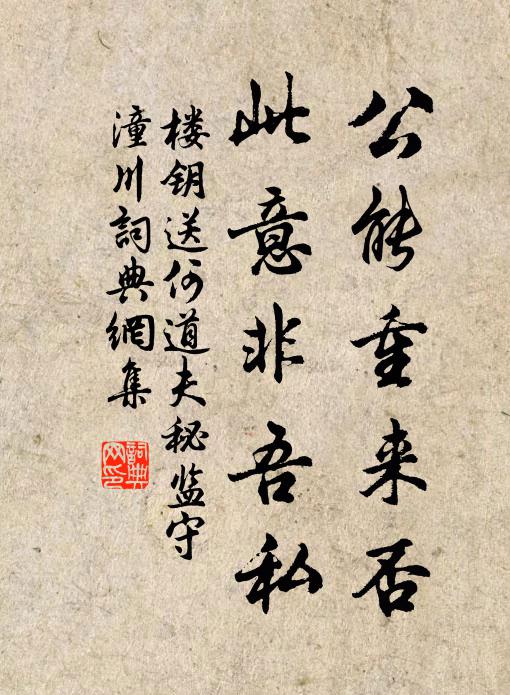 公能重来否
此意非吾私
楼钥送何道夫秘监守
潼川詞典網集
詞典
网印